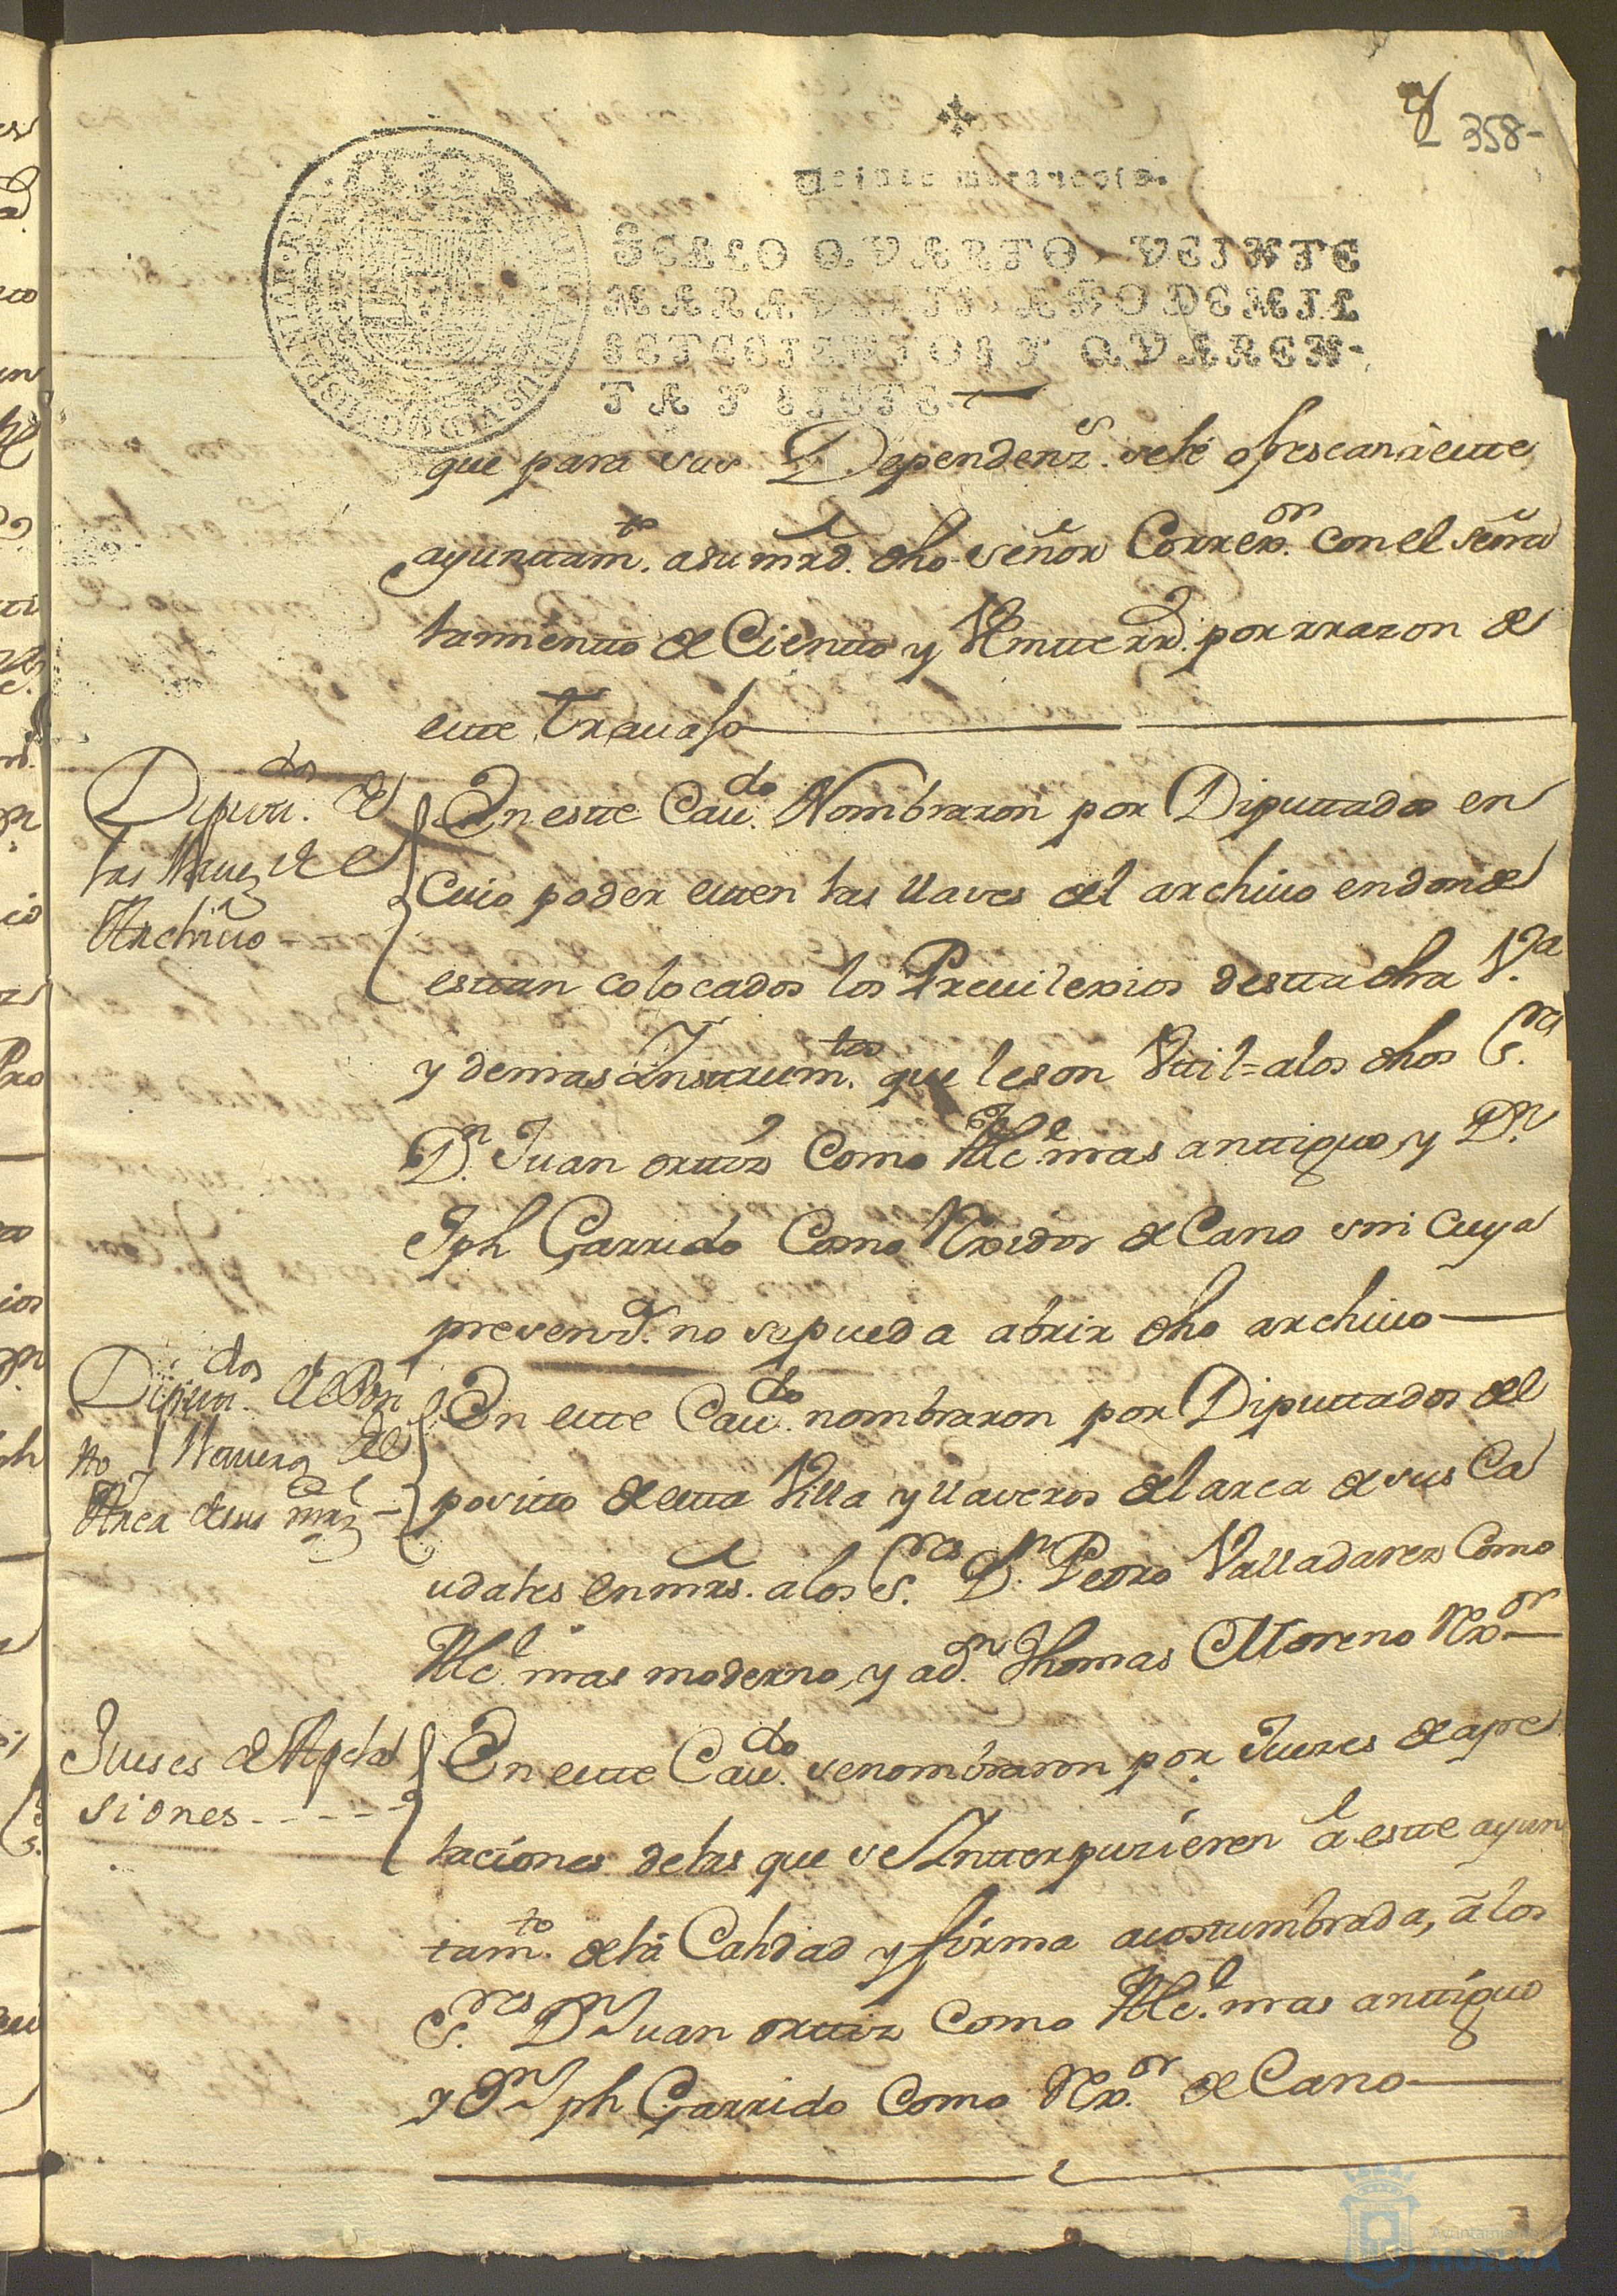 358-
Veinte maravedis.
SELLO QVARTO, VEINTE
MARAVEDIS, AÑO DE MIL
SETECIENTOS Y QVAREN-
TA Y SIETE.
que para sus Dependenz.s se le ofrescan â este
ayuntam.to a su mrd. dho señor Correx.or con el seña
lamientto de Cientto y Veintte rr.d por rrazon de
este travajo
Diputt.dos de
las llaves de el
Archivo
En estte Cau.do Nombraron por Diputtados en
cuio poder esten las llaves del archivo en donde
esttan colocados los Previlexios destta dha V.a
y demas Instrum.tos que le son Vtil= a los dhos S.res
D.n Juan orttiz Como Alc.e mas anttiguo, y D.n
Jph Garrido Como Rexidor de Cano sin cuya
presenz.a no se pueda abrir dho archivo
Diputt.dos del Posi
tto y llaveros del
Arca de sus mrs
En este Cau.do nombraron por Diputtados del
positto de esta Villa y llaveros del arca de sus Ca
udales en mrs. a los S.res D.n Pedro Valladares Como
Alc.l mas moderno, y a d.n Thomas Moreno Rex.or
Jueses de Apela
siones
En este Cau.do se nombraron por Juezes de ape
laciones de las que se Intterpuzieren â estte ayun
tam.to de la Calidad y firma acostumbrada, â los
S.res D.n Juan orttiz Como Alc.l mas anttiguo
y D.n Jph Garrido Como Rex.or de Cano
Ayuntamiento de
HUELVA